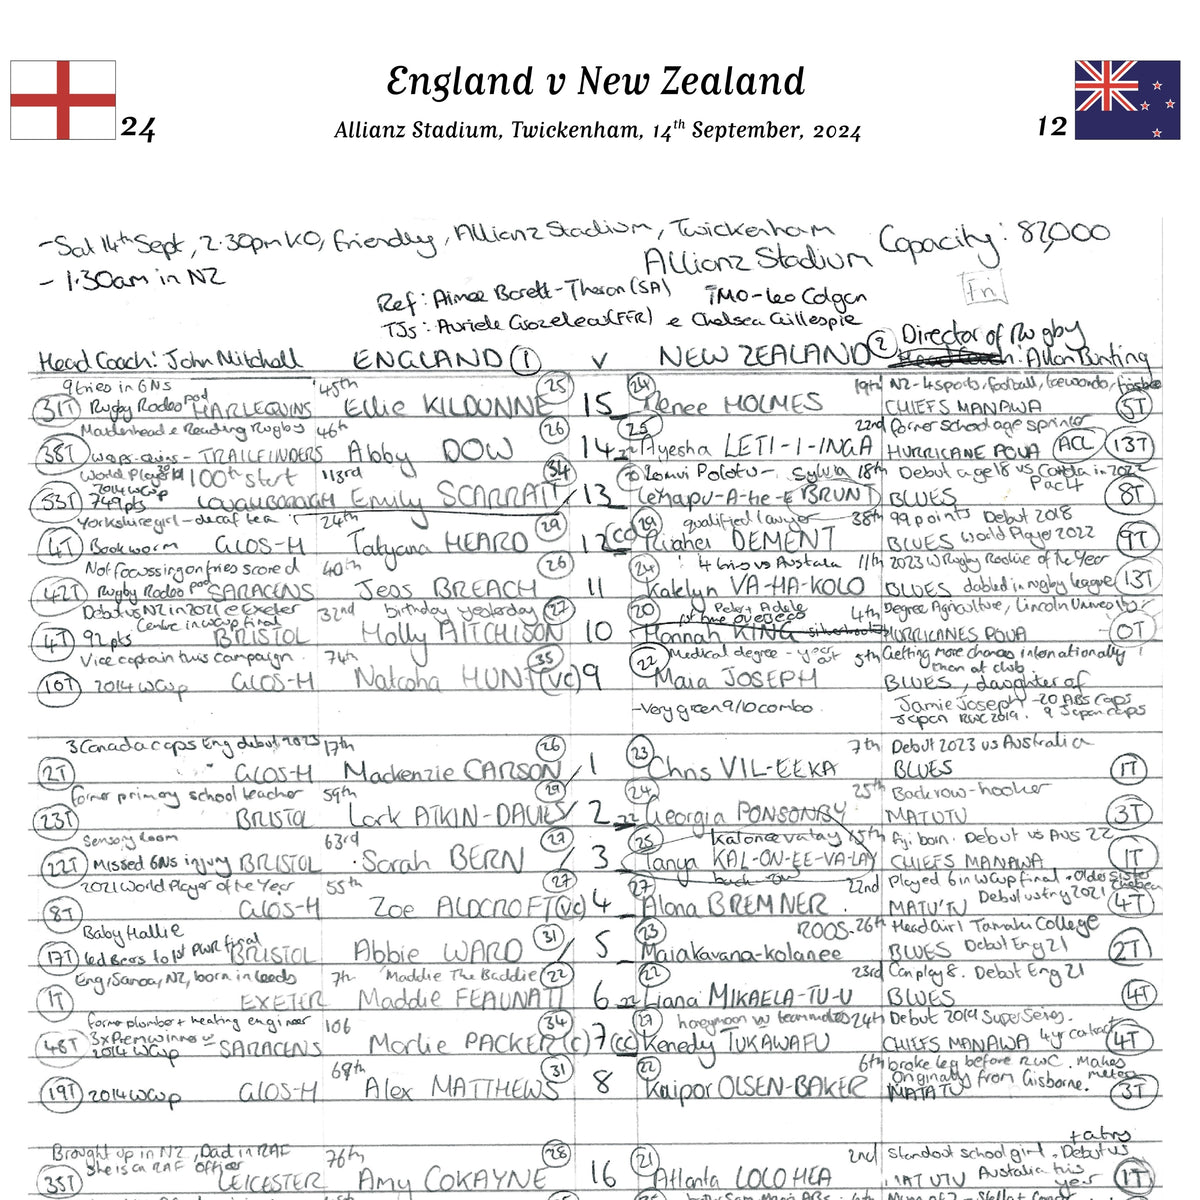 England v New Zealand
24
Allianz Stadium, Twickenham, 14th September, 2024
12
-Sat 14th Sept, 2.30pm KO, friendly, Allianz Stadium, Twickenham
Capacity: 82,000
- 1.30am in NZ
Allianz Stadium
Ref: Aimee Barett-Theron (SA)
TMO-Leo Colgan
Fri
TJs: Aurelie Groizeleau (FFR) & Chelsea Gillespie
Director of Rugby
Head Coach: John Mitchell ENGLAND 1 v NEW ZEALAND 2 : Allan Bunting
9 tries in 6Ns 45th 25 24 19th NZ-4 sports, football, taewondo,
31T Rugby Rodeo pod HARLEQUINS Ellie KILDUNNE 15 Renee HOLMES CHIEFS MANAWA 5T
Maidenhead & Reading Rugby 46th 26 25 22nd former school age sprinter
38T Wasps-Quins- TRAILFINDERS Abby DOW 14 Ayesha LETI-I-INGA HURRICANE POUA ACL 13T
World Player 100th start 113rd 34 Sylvia 18th Debut age 18 vs Canada in 2022
2014 WCup Pac4
53T 749pts LOUGHBOROUGH Emily SCARRATT 13 BRUNT BLUES 8T
Yorkshire girl - decaf tea 24th 29 29 qualified lawyer 38th 99 points Debut 2018
4T Bookworm GLOS-H Tatyana HEARD 12 (cc) Ruahei DEMENT BLUES World Player 2022 9T
Not focussing on tries scored 40th 26 24 4 tries vs Australia 11th 2023 W Rugby Rookie of the Year
42T Rugby Rodeo pod SARACENS Jess BREACH 11 Katelyn VA-HA-KOLO BLUES dabbled in rugby league 13T
Debut vs NZ in 2021 @ Exeter 32nd birthday yesterday 27 20 Peter & Adele 4th Degree Agriculture, Lincoln University
Centre in WCup final 1st time overseas
4T 92pts BRISTOL Holly AITCHISON 10 Hannah KING HURRICANES POUA 0T
Vice captain this campaign. 74th 35 22 Medical degree - year out 5th Getting more chances internationally
than at club.
10T 2014 WCup GLOS-H Natasha HUNT (vc) 9 Maia JOSEPH BLUES, daughter of
-Very green 9/10 combo Jamie Joseph - 20 ABs caps
Japan RWC 2019. 9 Japan caps
3 Canada caps Eng debut 2023 17th 26 23 7th Debut 2023 vs Australia
2T GLOS-H Mackenzie CARSON 1 Chris VIL-EEKA BLUES 1T
former primary school teacher 59th 29 24 25th Backrow-hooker
23T BRISTOL Lark ATKIN-DAVIES 2 Georgia PONSONBY MATATU 3T
Sensory Room 63rd 27 25 Kalounivalay 15th Fiji born. Debut vs Aus 22
22T Missed 6Ns injury BRISTOL Sarah BERN 3 Tanya KAL-ON-EE-VA-LAY CHIEFS MANAWA 1T
2021 World Player of the Year 55th 27 27 back row 22nd Played 6 in WCup final. Older sister Chelsea
8T GLOS-H Zoe ALDCROFT (vc) 4 Alana BREMNER MATU'TU Debut vs try 2021 4T
Baby Hallie 31 23 ROOS- 26th Head Girl Tamaki College
17T led Bears to 1st PWR final BRISTOL Abbie WARD 5 Maiakavana-kolanee BLUES Debut Eng 21 2T
Eng, Samoa, NZ, born in Leeds 7th Maddie The Baddie 22 22 23rd Can play 8. Debut Eng 21
1T EXETER Maddie FEAUNATI 6 Liana MIKAELA-TU-U BLUES 4T
former plumber + heating engineer 106 34 27 honeymoon w teammates 24th Debut 2019 Super Series.
3xPrem winner
48T 2014 WCup SARACENS Marlie PACKER (c) 7 (cc) Kenedy TUKAWAFU CHIEFS MANAWA 4yr contract 4T
69th 31 22 6th broke leg before RWC. Makes
Originally from Gisborne.
19T 2014 WCup GLOS-H Alex MATTHEWS 8 Kaipo OLSEN-BAKER MATATU 3T
Brought up in NZ, Dad in RAF 76th 28 21 2nd Standout school girl. Debut vs
She is an RAF officer
35T LEICESTER Amy COKAYNE 16 Atlanta LOLOHEA MATUTU Australia this year 1T